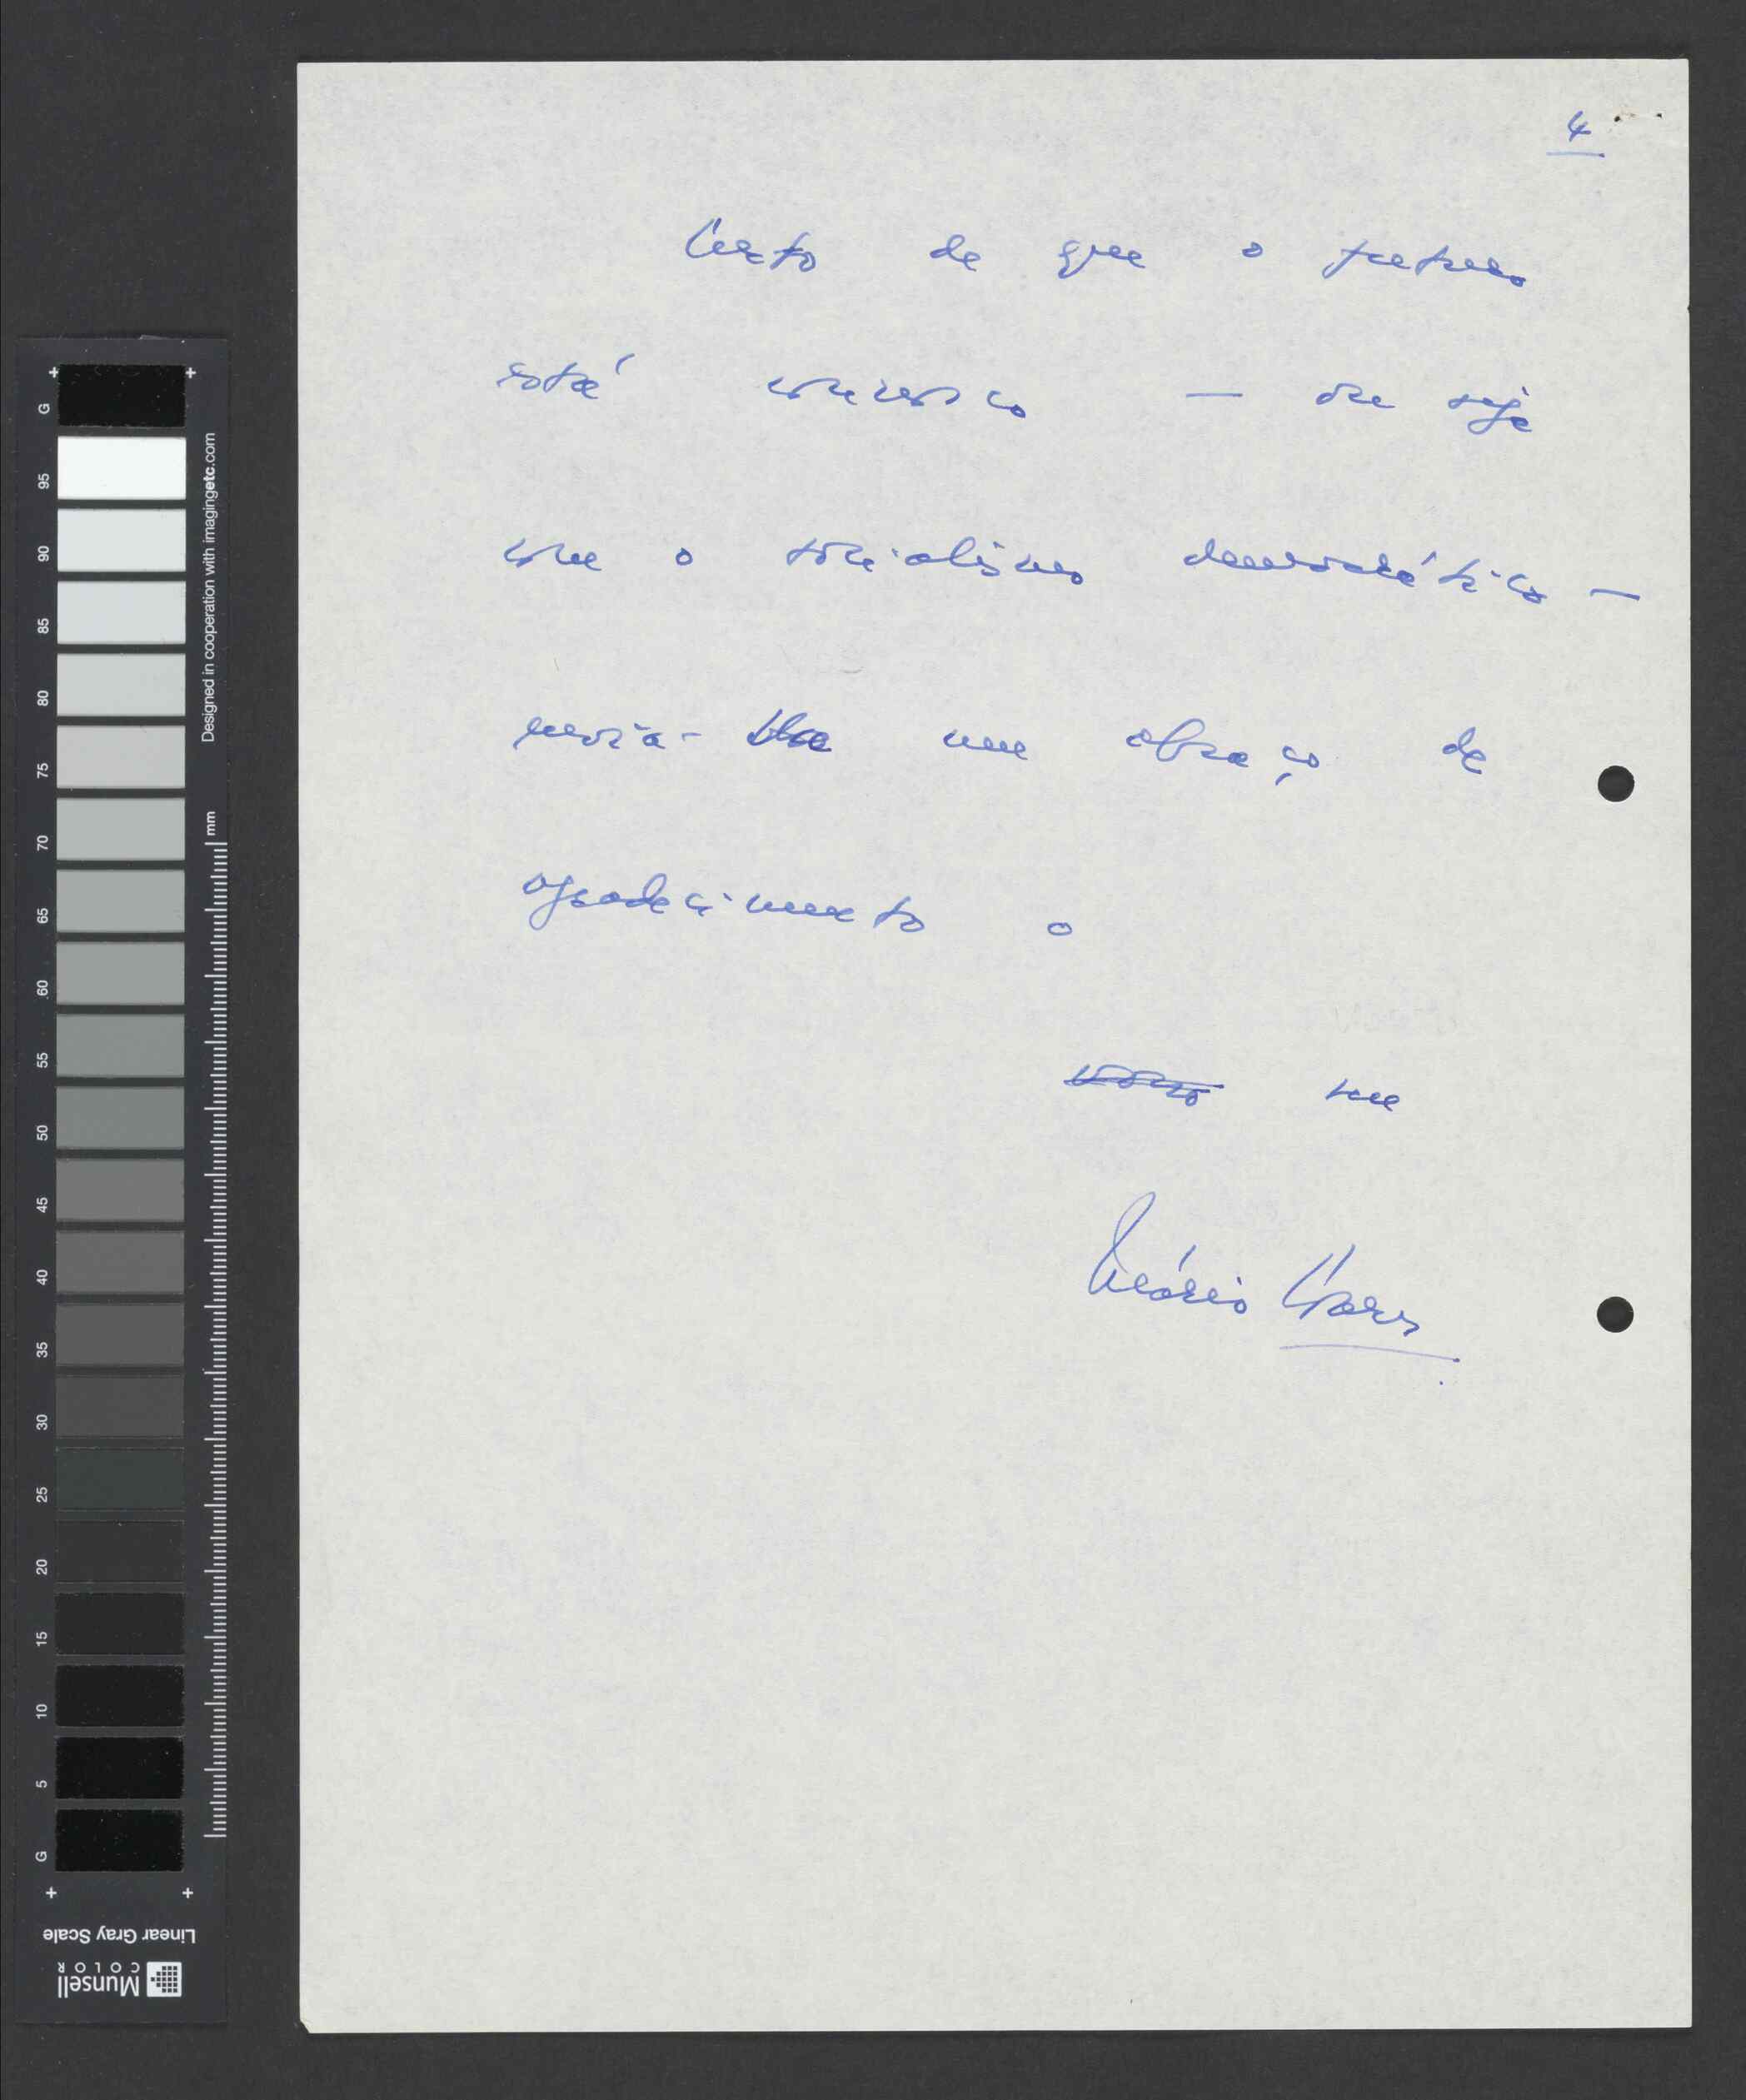 4
Certo de que o futuro
está connosco — ou seja
com o socialismo democrático —
envia-lhe um abraço de
agradecimento o
seu
Mário Soares
G
95
90
85
80
75
70
65
60
55
50
45
40
35
30
25
20
15
10
5
G
Designed in cooperation with imagingetc.com
mm
Linear Gray Scale
Munsell
COLOR